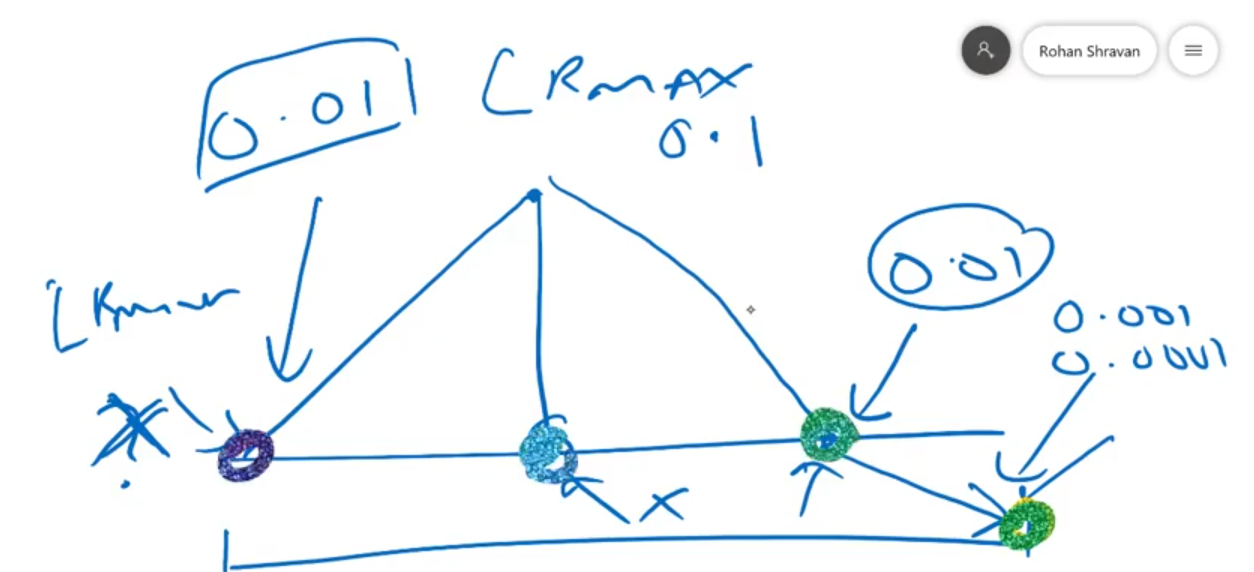 Rohan Shravan
0.01
LRMAX
0.1
0.01
0.001
0.0001
X